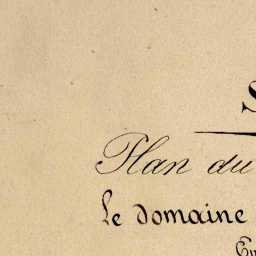 S
Plan du
Le Domaine